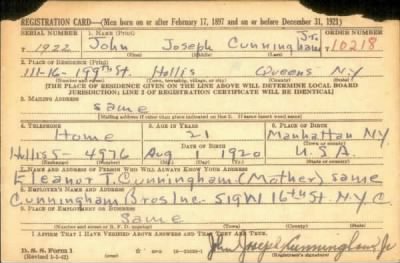 REGISTRATION CARD—(Men born on or after February 17, 1897 and on or before December 31, 1921)
SERIAL NUMBER 1. NAME (Print) ORDER NUMBER
T 1922 John Joseph Cunningham Jr. 10218
(First) (Middle) (Last)
2. PLACE OF RESIDENCE (Print)
111-16-199th St. Hollis Queens N.Y.
(Number and street) (Town, township, village, or city) (County) (State)
[THE PLACE OF RESIDENCE GIVEN ON THE LINE ABOVE WILL DETERMINE LOCAL BOARD
JURISDICTION; LINE 2 OF REGISTRATION CERTIFICATE WILL BE IDENTICAL]
3. MAILING ADDRESS
same
(Mailing address if other than place indicated on line 2. If same insert word same)
4. TELEPHONE 5. AGE IN YEARS 6. PLACE OF BIRTH
Home 21 Manhattan N.Y.
DATE OF BIRTH
Hollis 5-4976 Aug 1 1920 U.S.A.
(Exchange) (Number) (Mo.) (Day) (Yr.) (State or country)
7. NAME AND ADDRESS OF PERSON WHO WILL ALWAYS KNOW YOUR ADDRESS
Eleanor T. Cunningham (Mother) same
8. EMPLOYER'S NAME AND ADDRESS
Cunningham Bros Inc. 519 W 16th St. N.Y.C
9. PLACE OF EMPLOYMENT OR BUSINESS
Same
(Number and street or R. F. D. number) (Town) (County) (State)
I AFFIRM THAT I HAVE VERIFIED ABOVE ANSWERS AND THAT THEY ARE TRUE.
D. S. S. Form 1
(Revised 1-1-42) (over)
John Joseph Cunningham Jr
(Registrant's signature)